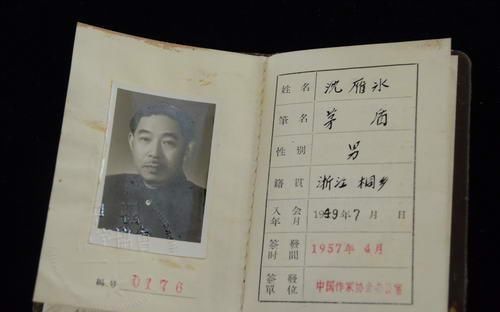 編号 0176
姓名 沈雁冰
筆名 茅盾
性别 男
籍貫 浙江桐乡
入会年月 1949年7月 日
簽發时間 1957年4月
簽發單位 中国作家协会